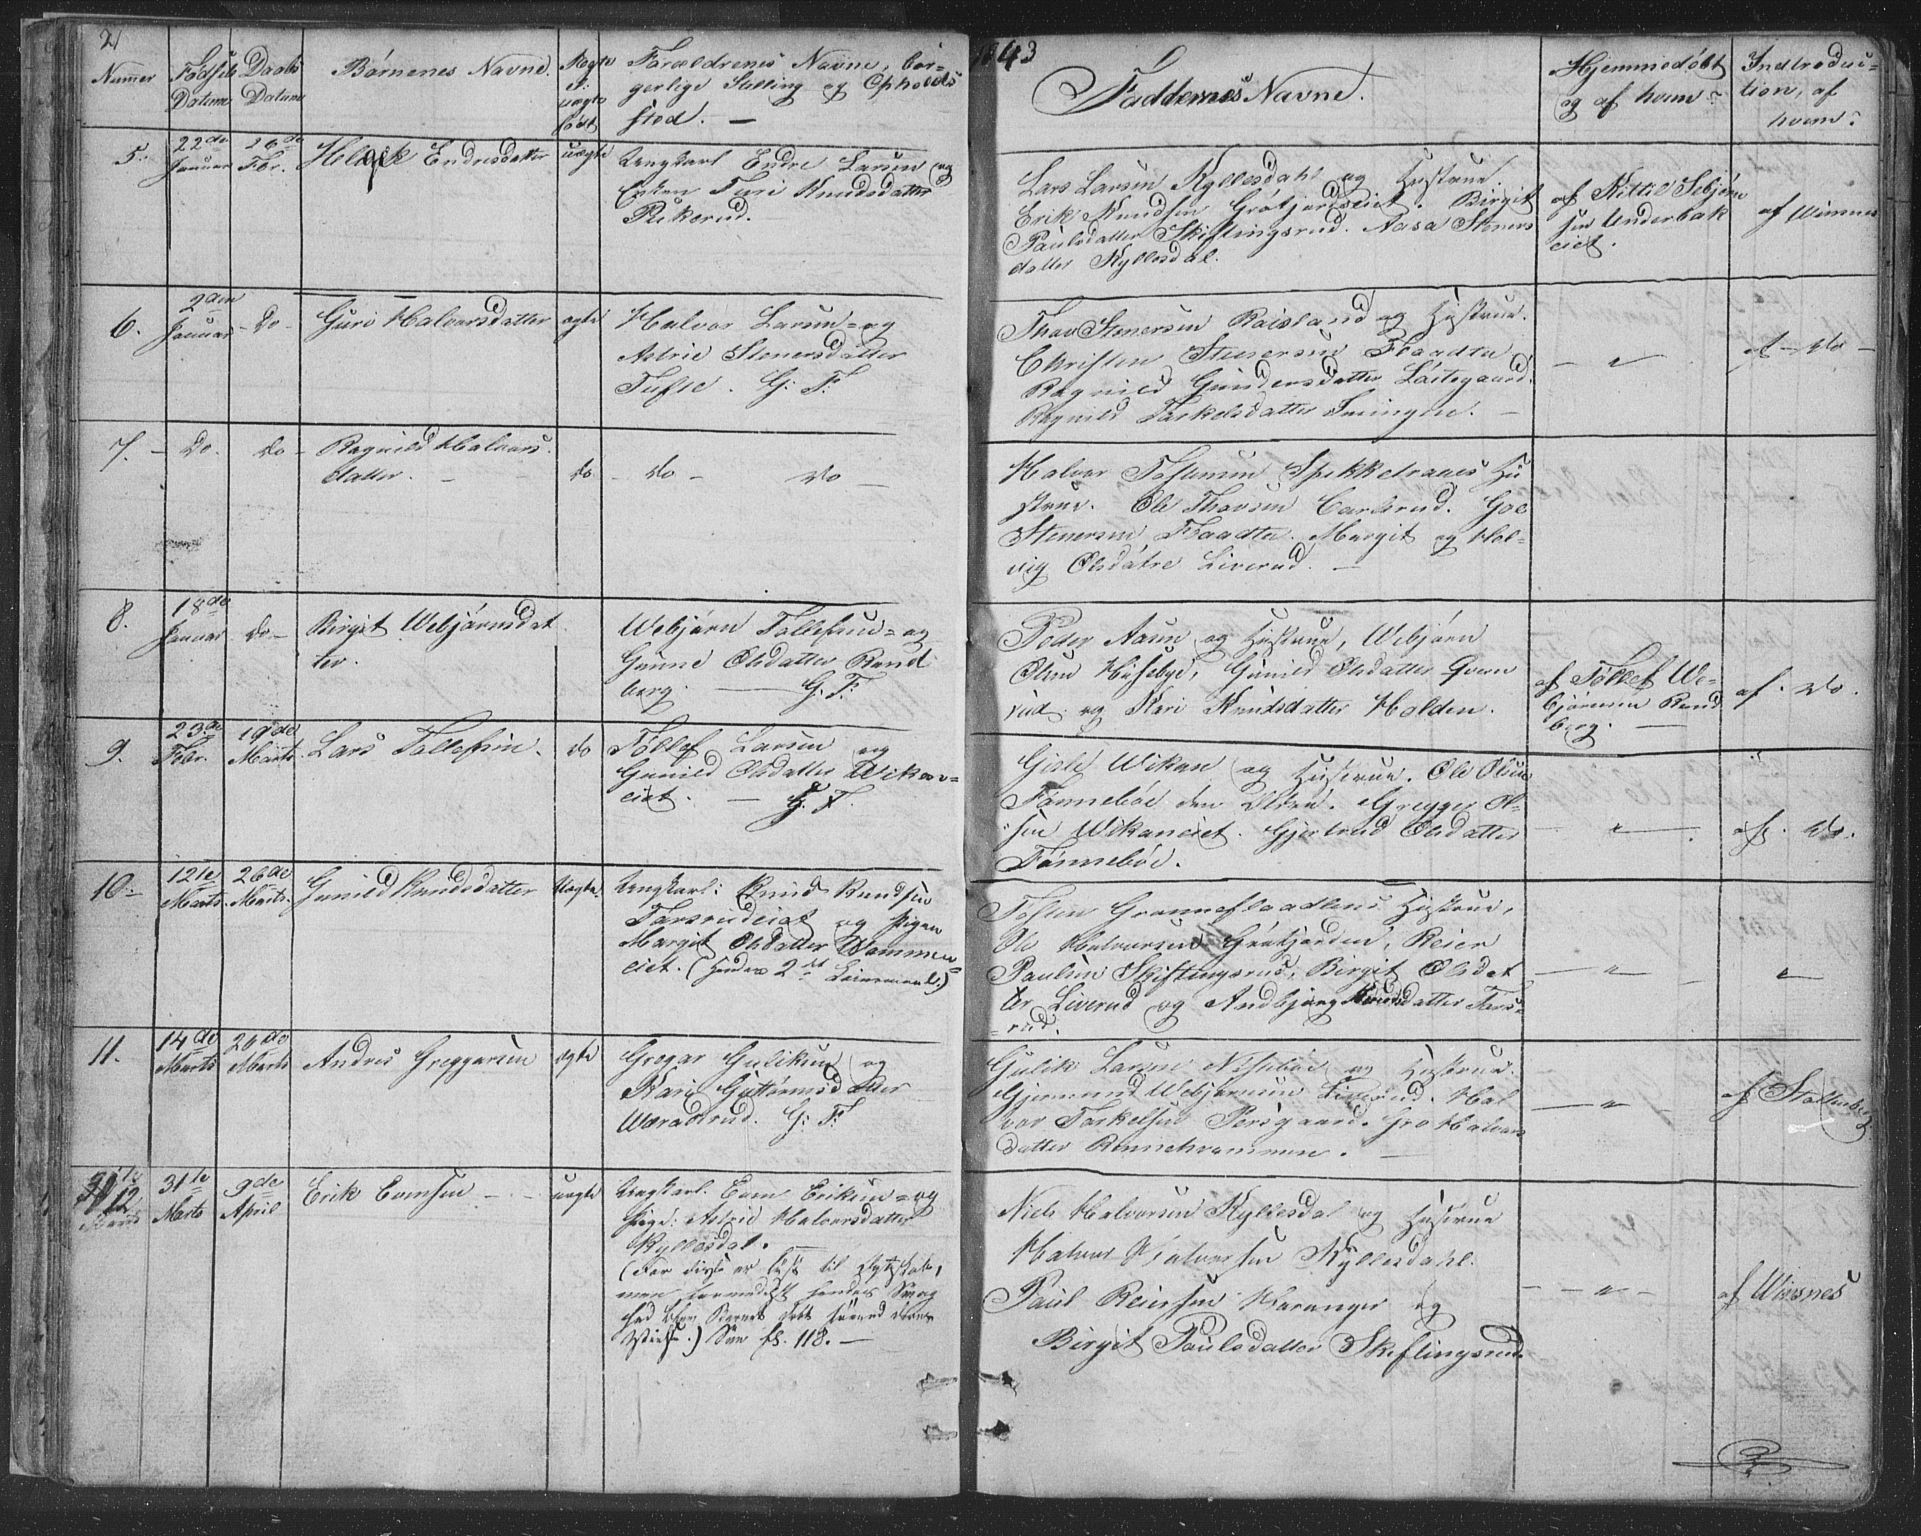 2/
1843
Numer
Fødsels Datum
Daabs Datum
Børnenes Navne.
Ægte ell. uægte født
Forældrenes Navne, bor-
gerlige Stilling og Opholds
sted. —
Faddernes Navne.
Hjemmedøbt
og af hvem?
Indtroduc-
tion, af
hvem?
5.
22de Januar
26de Febr.
Endresdatter
uægte
Ungkarl Endre Larsen og
Enken Turi Knudsdatter
Lars Larsen Kyllesdahl og Hustrue.
Erik Knudsen Grøtjordseiet. Birgit
Paulsdatter Skiftingsrud. Aasa Steners
datter Kyllesdal.
af Kittil Sebjørn
sen Underbak
eiet.
af Winsnes
6.
2den Januar
Do
Guri Halvorsdatter
ægte
Halvor Larsen og
Astrie Stenersdatter
Tufte. G: F:
Thov Stenersen Raisland og Hustrue.
Christen Stenersen Flaadte
Ragnild Gundersdatter Løitegaard.
Ragnild Torkelsdatter
— " —
af — Do —
7. —
Do.
Do —
Ragnild Halvors
datter. —
Do
Do —
Do —
Halvor Tostensen Spikketraaes Hu
strue. Ole Thovsen Carlsrud. Goe
Stenersen Flaadte. Margit og Hel-
vig Olsdøtre Liverud. —
8.
18de Januar
Do —
Birgit Webjørnsdat
ter.
Webjørn Tollefsen = og
Gunne Olsdatter Rand
berg. — G. F:
Peder Aasen og Hustrue, Webjørn
Olsen Husebye, Gunild Olsdatter Qvern
rud. og Kari Knudsdatter Holden.
af Tollef We-
bjørnsen Rand
berg. —
af. Do.
9.
23de Febr.
19de Marts
Lars Tollefsen.
do
Tollef Larsen og
Gunild Olsdatter Wikan-
eiet. — G. F.
Gisle Wikan og Hustrue. Ole Olsen
Fønnebøe den Eldre. Gregger Ol-
sen Wikaneiet. Gjertrud Olsdatter
Fønnebøe.
— " —
af. Do.
10.
12te Marts.
26de Marts.
Gunild Knudsdatter
Uægte.
Ungkarl: Knud Knudsen
Torsrudeiet og Pigen
Margit Olsdatter Wammen-
eiet. (Hendes 2det Leiermaal.)
Tosten Grønneflaadtens Hustrue,
Ole Halvorsen Grøtjorden, Reier
Paulsen Skiftingsrud, Birgit Olsdat
ter Liverud og Andbjørg datter Tors-
rud.
— " —
"
11.
14de Marts
26de Marts
Andres Greggersen
ægte
Gregar Guliksen og
Kari Guttormsdatter
Wæraasrud. G: F:
Gulik Larsen og Hustrue.
Gjermund Webjørnsen Liverud. Hal
vor Torkelsen Persgaard. Gro Halvors
datter Rennehvammen. —
— " —
af Stoltenberg
12
31te Marts
9de April
Erik Evensen —
uægte
Ungkarl. Even Eriksen = og
Pige: Astrid Halvorsdatter
Kyllesdal.
(For disse er lyst til Ægteskab,
men formedelst hendes Svag
hed blev Barnet født førend deres
Vielse.) See fl. 118. —
Niels Halvorsen Kyllesdal og Hustrue
Halvor Halvorsen Kyllesdahl.
Paul Reiersen Haranger og
Birgit Paulsdatter Skiftingsrud.
— " —
af Winsnes